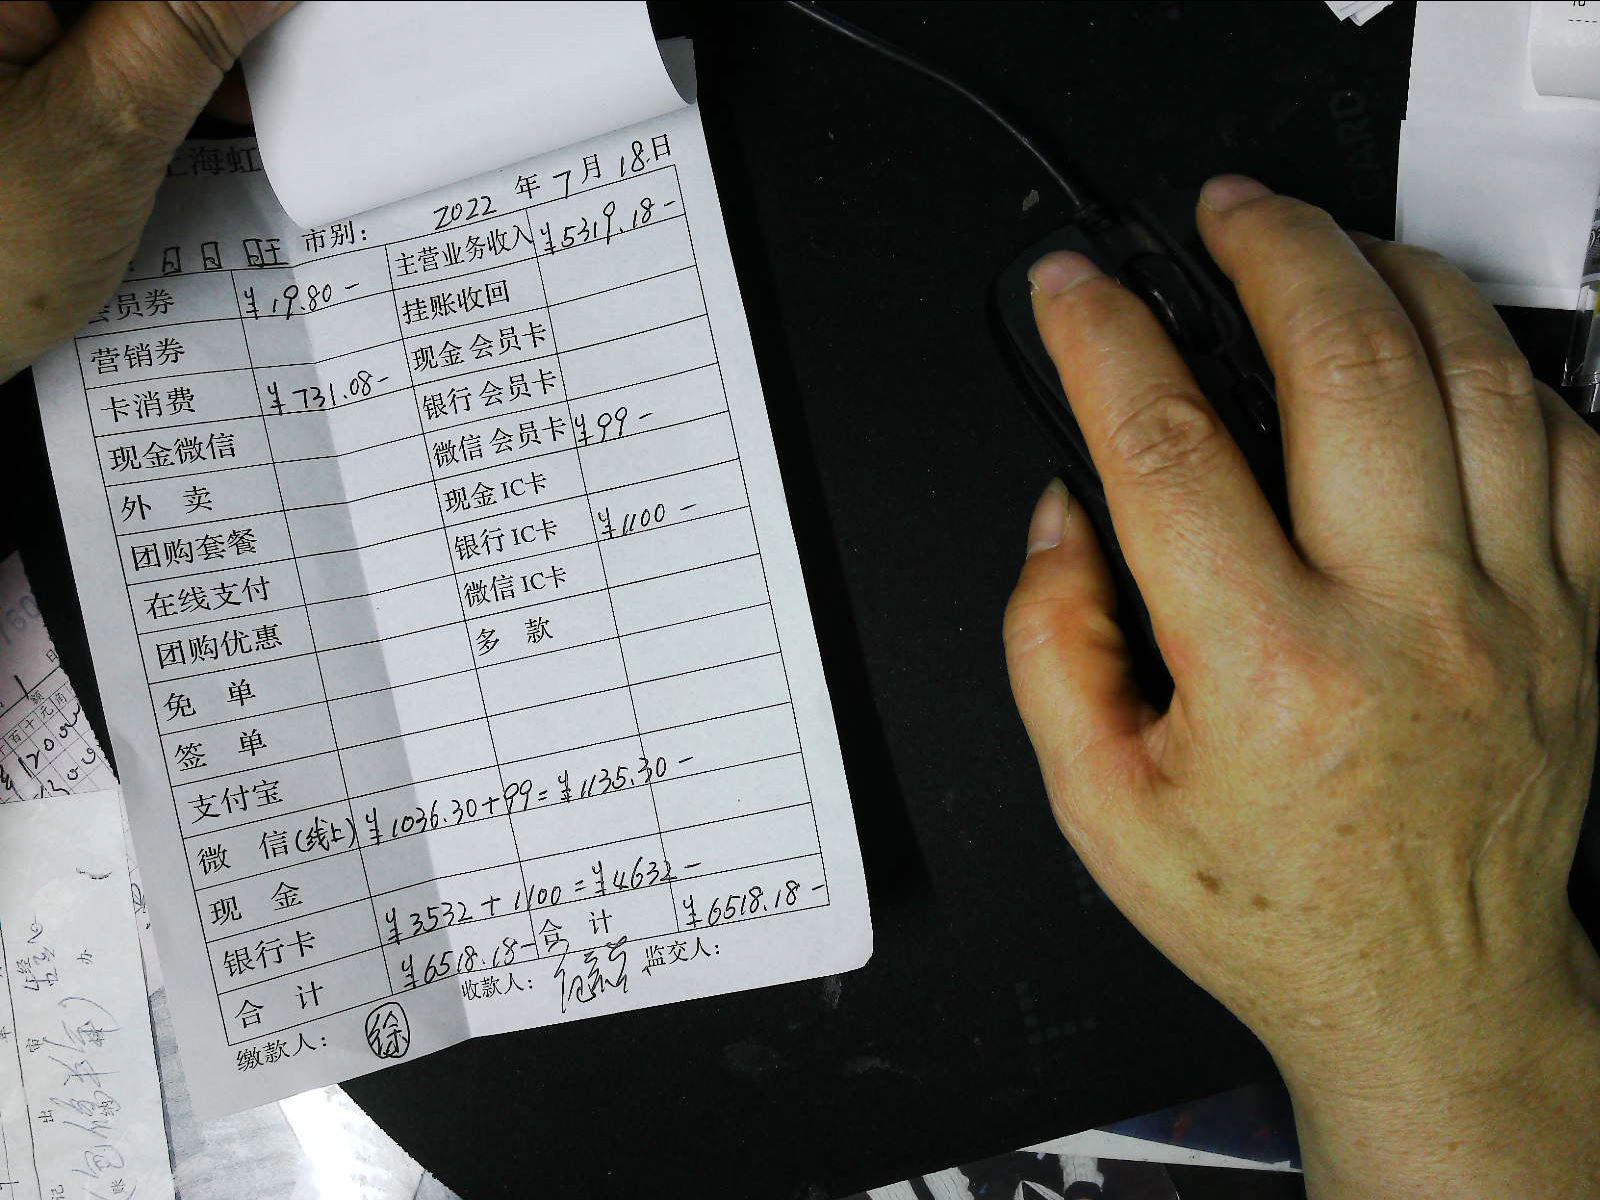 上海虹
2022 年 7 月 18 日
市别：
会员券 ¥19.80- 主营业务收入 ¥5319.18-
营销券 挂账收回
卡消费 ¥731.08- 现金 会员卡
现金微信 银行 会员卡
外 卖 微信 会员卡 ¥99-
团购套餐 现金 IC卡
在线支付 银行 IC卡 ¥1100-
团购优惠 微信 IC卡
免 单 多 款
签 单
支付宝
微 信(线上) ¥1036.30+99=¥1135.30-
现 金
银行卡 ¥3532+1100=¥4632-
合 计 ¥6518.18- 合 计 ¥6518.18-
缴款人： 徐 收款人： 监交人：